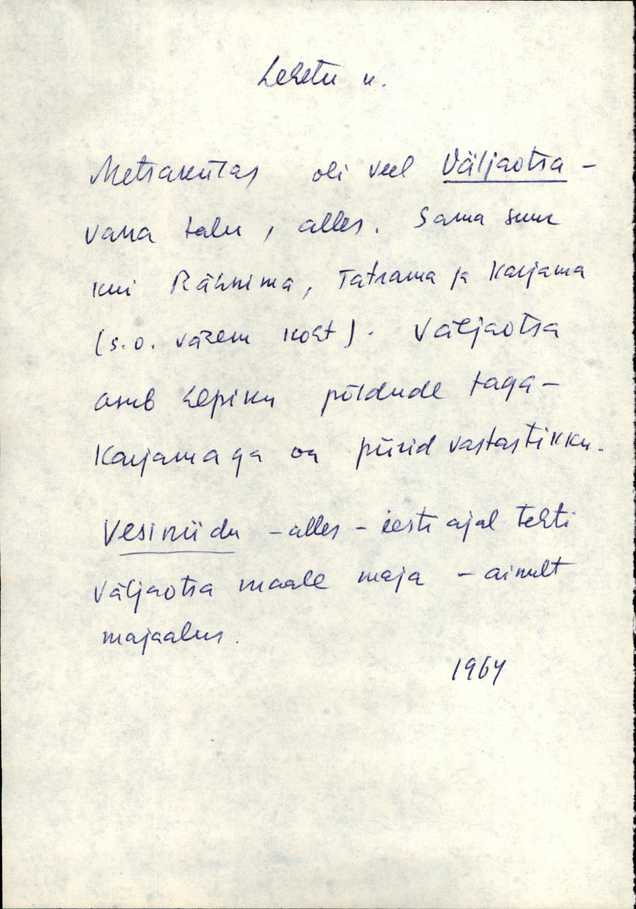 Lehetu k.
Metsakülas oli veel Väljaotsa -
vana talu, alles. Sama suur
kui Rähnima, Tatrama ja Karjama
(s.o. väzem koht). Väljaotsa
asub Lepiku põldude taga -
Karjamaga on piirid vastastikku.
Vesiniidu - alles - eesti ajal tehti
Väljaotsa maale maja - ainult
majaalus.
1964